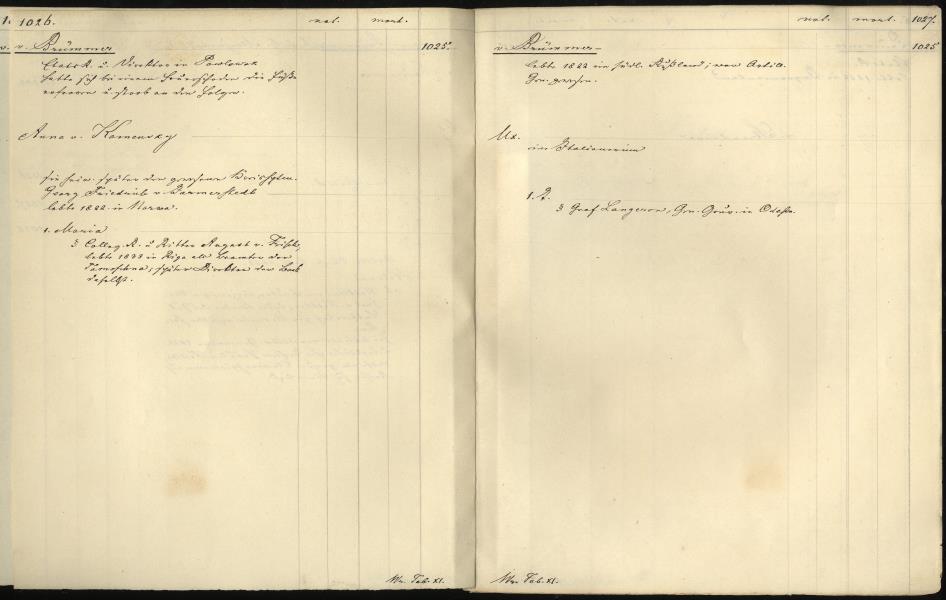 1. 1026. nat. mort.
v. v. Brümmer 1025.
Etats R. u. Direktor in Pawlowsk
hatte sich bei einem
erfroren u. starb an den Folgen.
Anna v. Kamensky
sie heir. später den gewesenen
Georg Friedrich v.
lebte 1822. in Narwa.
1. Maria
3 Colleg. R. u. Ritter August v.
lebte 1833 in Riga als Beamter der
Tamoschna; später Direktor der Bank
daselbst.
Wr. Tab. XI.
nat. mort. 1027.
v. Brümmer 1025
lebte 1822 im südl. Rußland; war Artill.
Gen. gewesen.
Ux.
eine Italienerin
1. F.
3 Graf Langeron, Gen. Gouv. in Odessa.
Wr. Tab. XI.